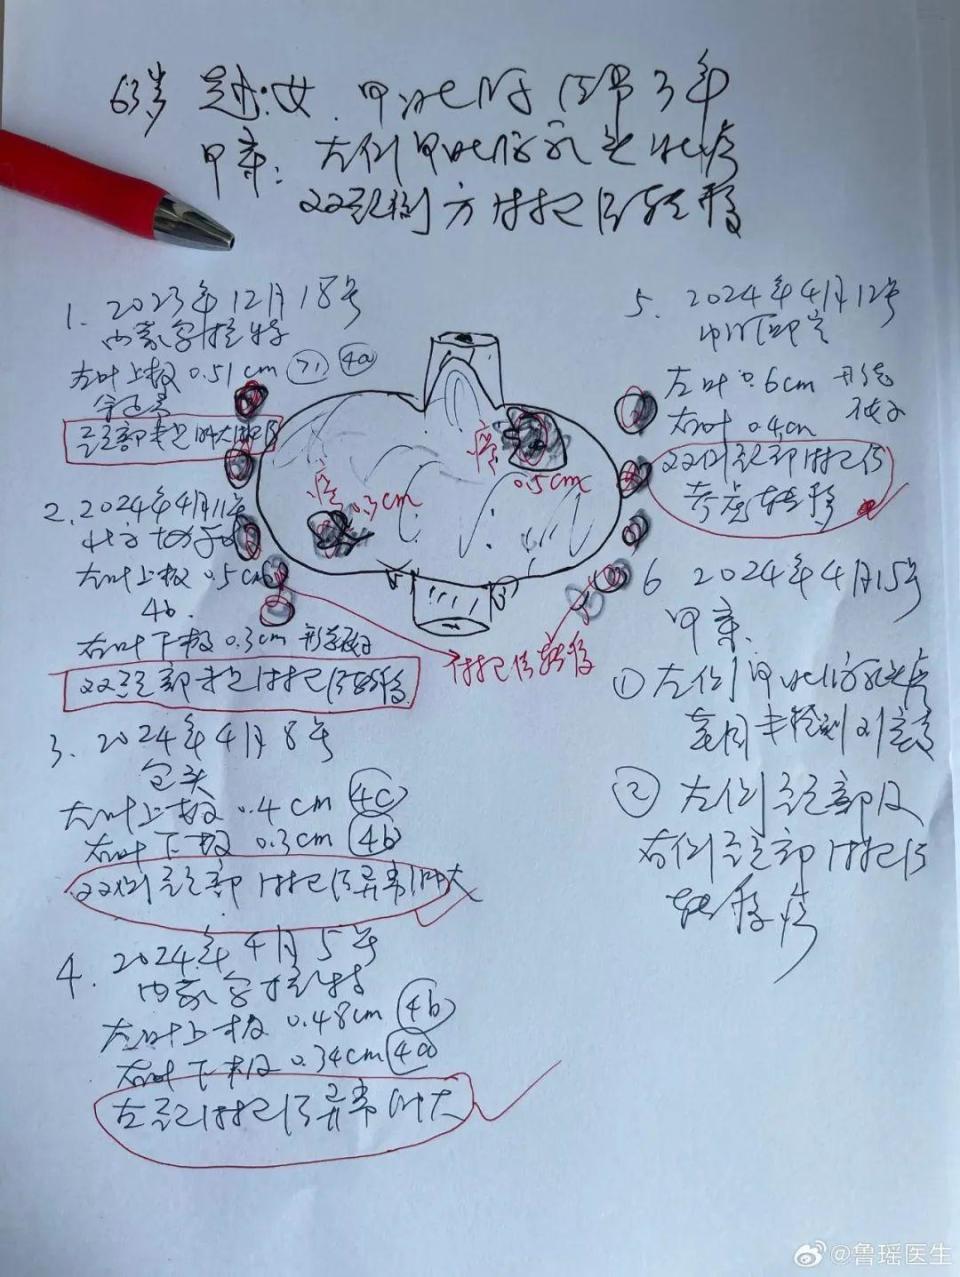 63岁 赵·女 甲状腺结节3年
甲亲: 左侧甲状腺乳头状癌
双颈侧方淋巴结转移
1. 2023年12月18号
内蒙鄂托特
左叶上极 0.51cm >1 4a
颈部未见肿大淋巴
2. 2024年4月11号
左叶上极 0.5cm
4b.
右叶下极 0.3cm 形态
双颈部 淋巴结转移
3. 2024年4月8号
包头
左叶上极 0.4cm 4c
右叶下极 0.3cm 4b
双侧颈部淋巴结异常肿大
4. 2024年4月5号
左叶上极 0.48cm 4b
右叶下极 0.34cm 4a
左颈淋巴结异常肿大
癌
0.3cm
癌
0.5cm
淋巴结转移
5. 2024年4月12号
左叶 0.6cm 形态
右叶 0.4cm
双侧颈部淋巴结
考虑转移
6 2024年4月15号
①左侧甲状腺乳头癌
基因未检测到突变
②左侧颈部及
右侧颈部淋巴结
转移癌
@鲁瑶医生